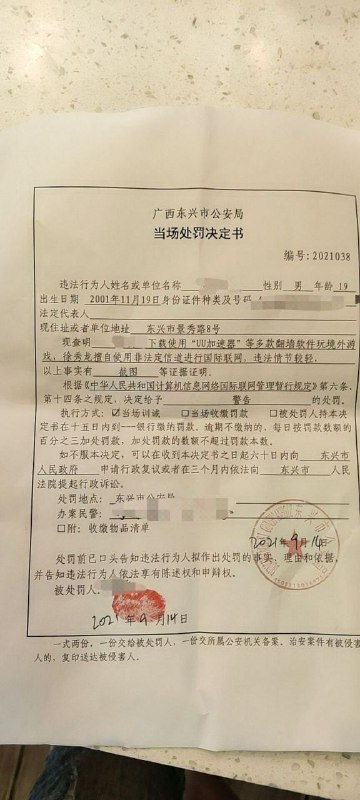 广西东兴市公安局
当场处罚决定书
编号:2021038
违法行为人姓名或单位名称 性别 男 年龄 19
出生日期 2001年11月19日身份证件种类及号码
法定代表人
现住址或者单位地址 东兴市景秀路8号
现查明 下载使用"UU加速器"等多款翻墙软件玩境外游
戏，徐秀龙擅自使用非法定信道进行国际联网，违法情节较轻。
以上事实有 截图 等证据证明。
根据《中华人民共和国计算机信息网络国际联网管理暂行规定》第六条、
第十四条之规定，决定给予 警告 的处罚。
执行方式：☑当场训诫 □当场收缴罚款 □被处罚人持本决
定书在十五日内到---银行缴纳罚款。逾期不缴纳的，每日按罚款数额的
百分之三加处罚款，加处罚款的数额不超过罚款本数。
如不服本决定，可以在收到本决定书之日起六十日内向 东兴市
人民政府 申请行政复议或者在三个月内依法向 东兴市 人民
法院提起行政诉讼。
处罚地点：东兴市公安局
办案民警：
□附：收缴物品清单
2021年9月14日
处罚前已口头告知违法行为人拟作出处罚的事实、理由和依据，
并告知违法行为人依法享有陈述权和申辩权。
被处罚人
2021年9月14日
一式两份，一份交给被处罚人，一份交所属公安机关备案。治安案件有被侵害
人的，复印送达被侵害人。